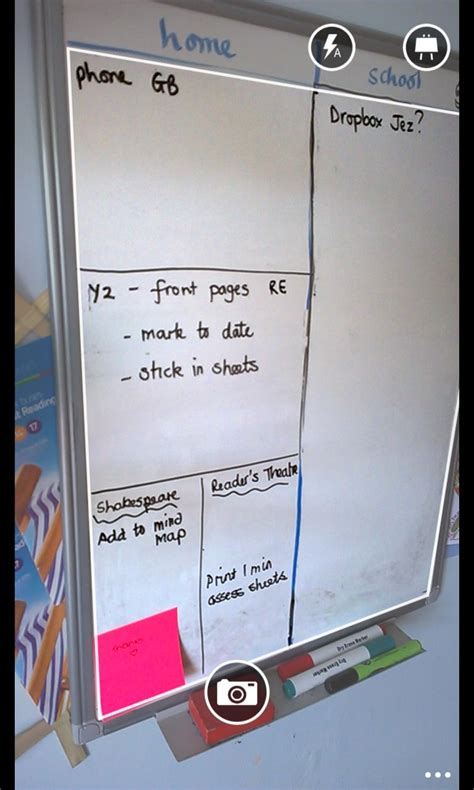 home
school
phone GB
Dropbox Jez?
Y2 - front pages RE
- mark to date
- stick in sheets
Shakespeare
Add to mind
map
Reader's Theatre
Print 1 min
assess sheets
Dry Erase Marker
Dry Erase Marker
Reading
17
A